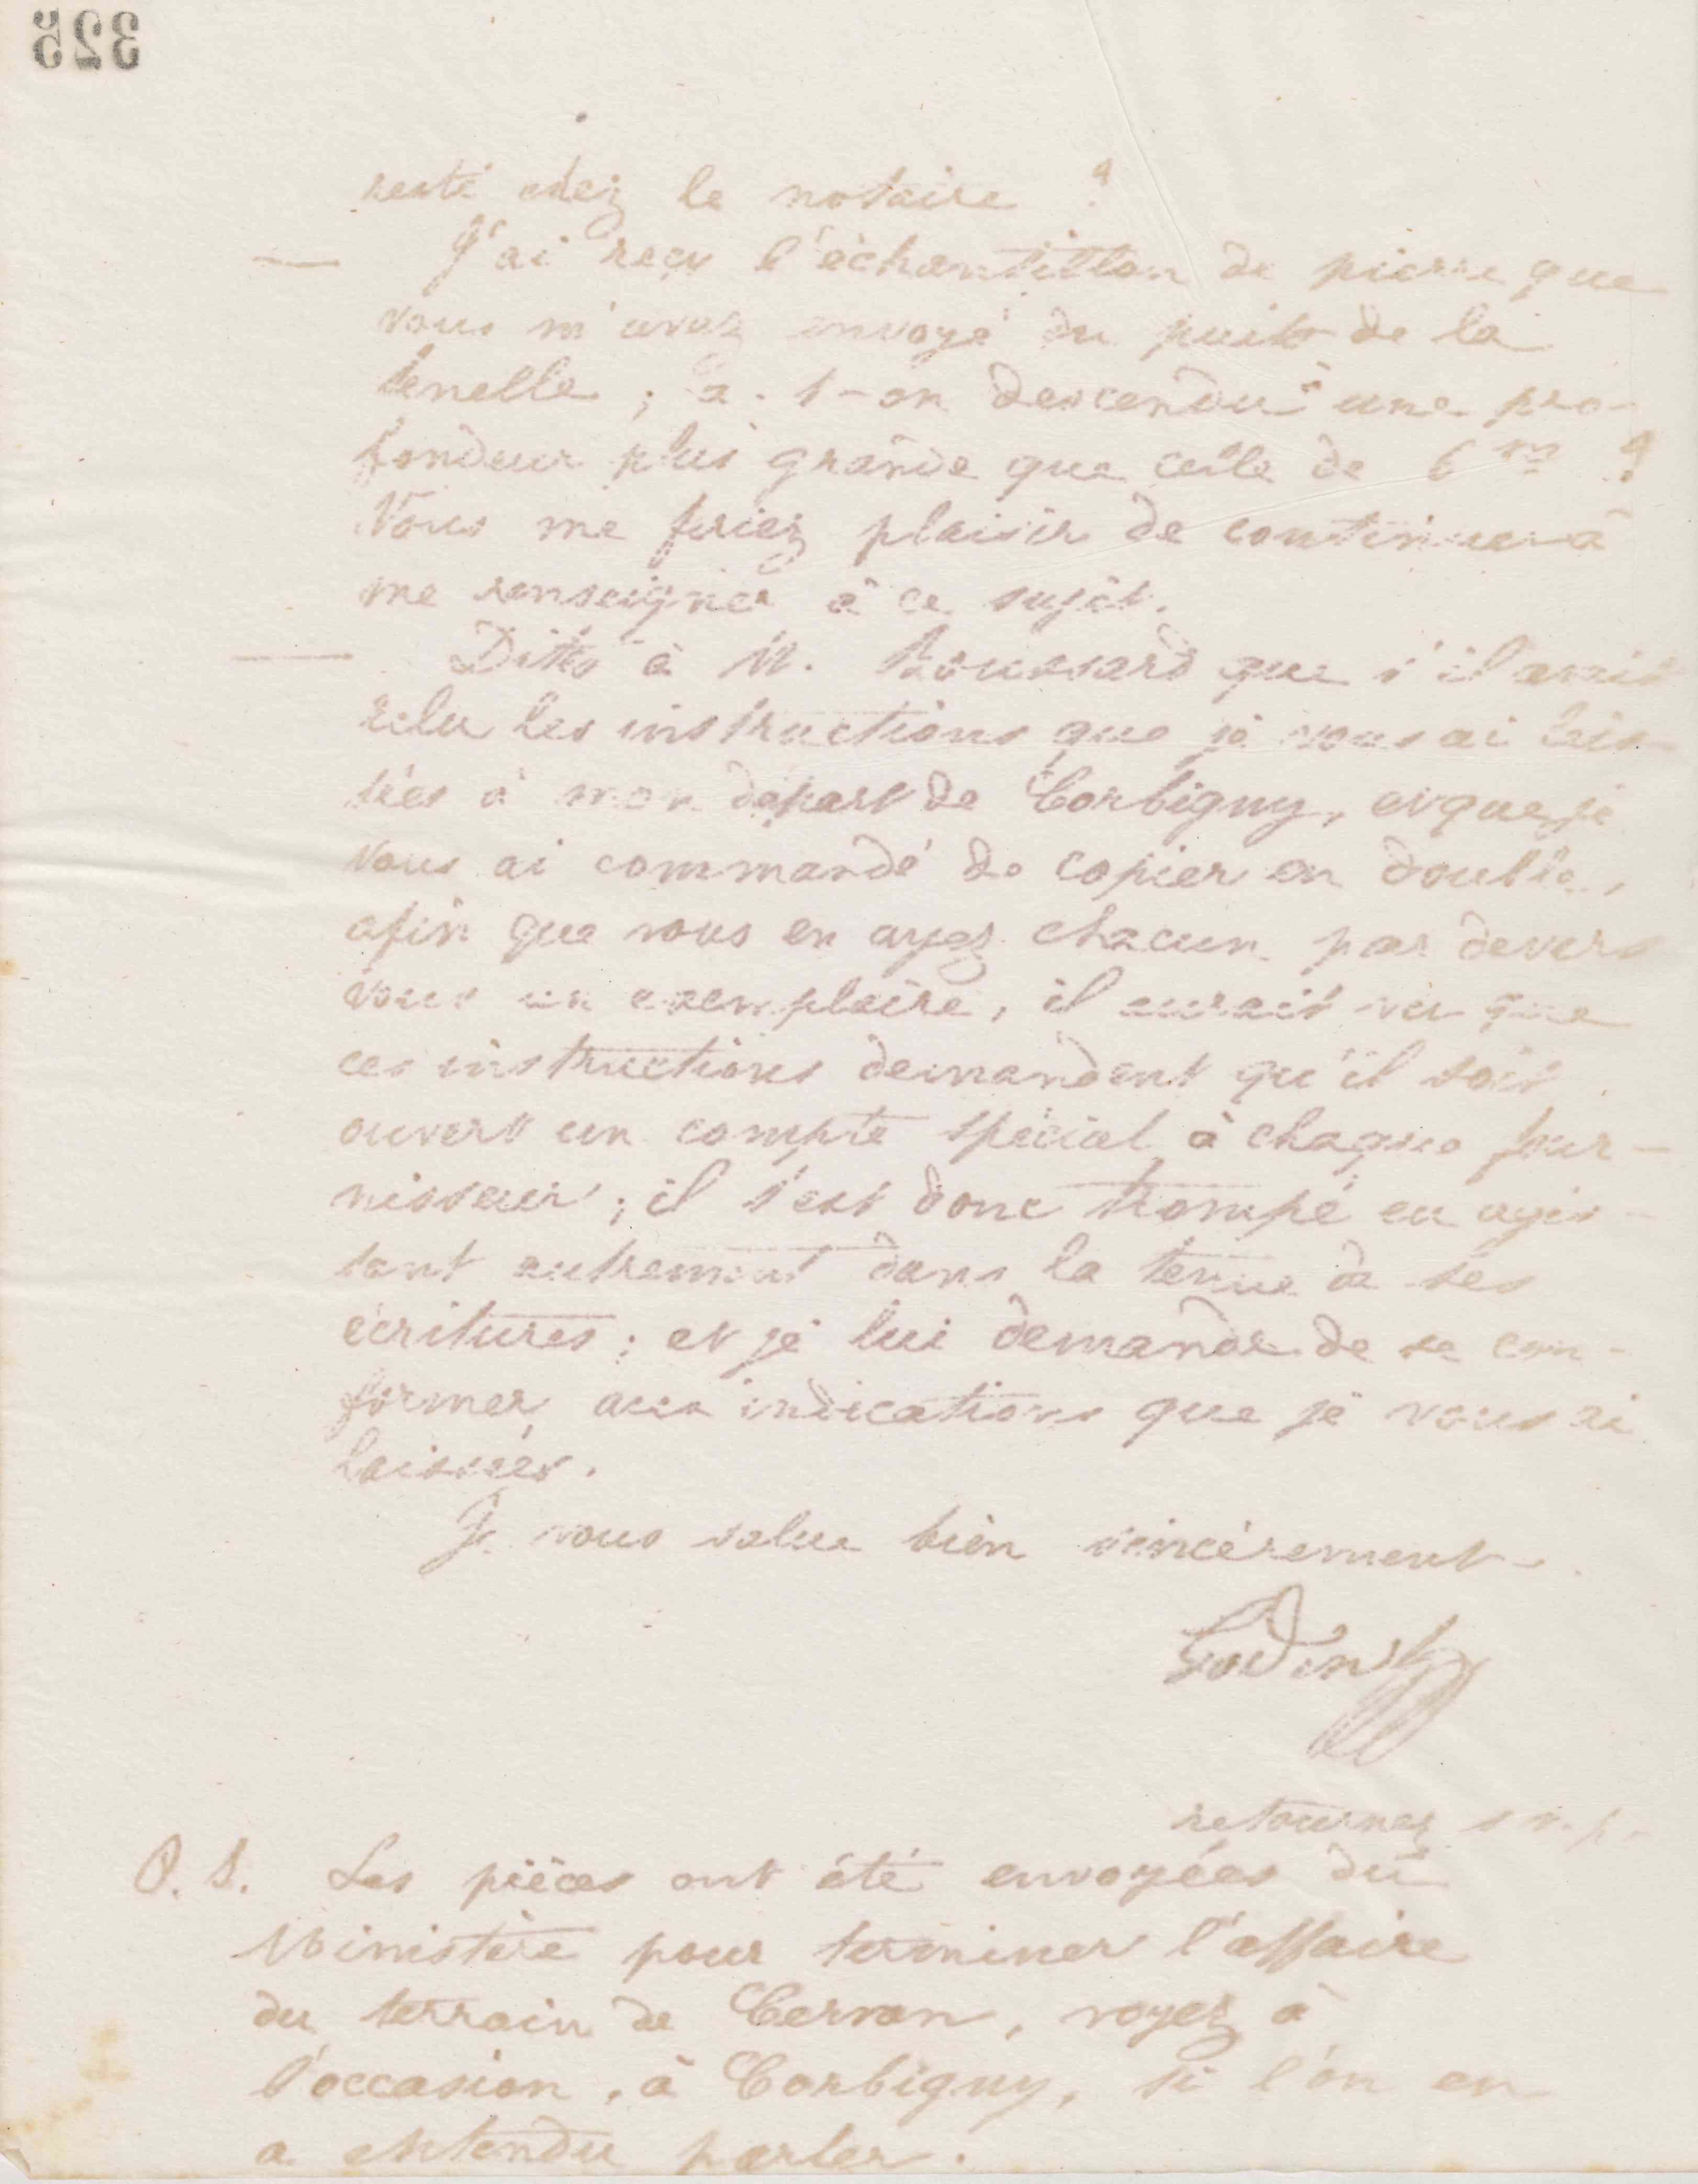 325
resté chez le notaire ?
— J'ai reçu l'échantillon de pierre que
vous m'avez envoyé du puits de la
tenelle ; a-t-on descendu à une pro-
fondeur plus grande que celle de 6 m ?
Vous me feriez plaisir de continuer à
me renseigner à ce sujet.
— Dites à M. Roussard que s'il avait
relu les instructions que je vous ai lais-
sées à mon départ de Corbigny, et que je
vous ai commandé de copier en double,
afin que vous en ayez chacun par devers
vous un exemplaire, il aurait vu que
ces instructions demandent qu'il soit
ouvert un compte spécial à chaque four-
nisseur ; il s'est donc trompé en agis-
sant autrement dans la tenue de ses
écritures ; et je lui demande de se con-
former aux indications que je vous ai
laissées.
Je vous salue bien sincèrement.
Godin
retournez s v. p.
P. S. Les pièces ont été envoyées du
Ministère pour terminer l'affaire
du terrain de Cervon, voyez à
l'occasion, à Corbigny, si l'on en
a entendu parler.